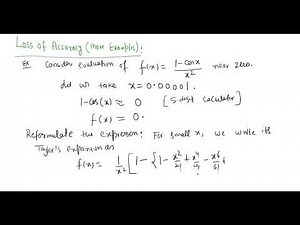 Loss of Accuracy (More Examples):
Ex Consider evaluation of f(x) = 1-cosx / x² near zero.
did we take x = 0.00001.
1-cos(x) ≈ 0 [5-digit calculator]
f(x) = 0.
Reformulate the expression: For small x, we write its
Taylor's expansion as
f(x) = 1/x² [1 - {1 - x²/2! + x⁴/4! - x⁶/6! +